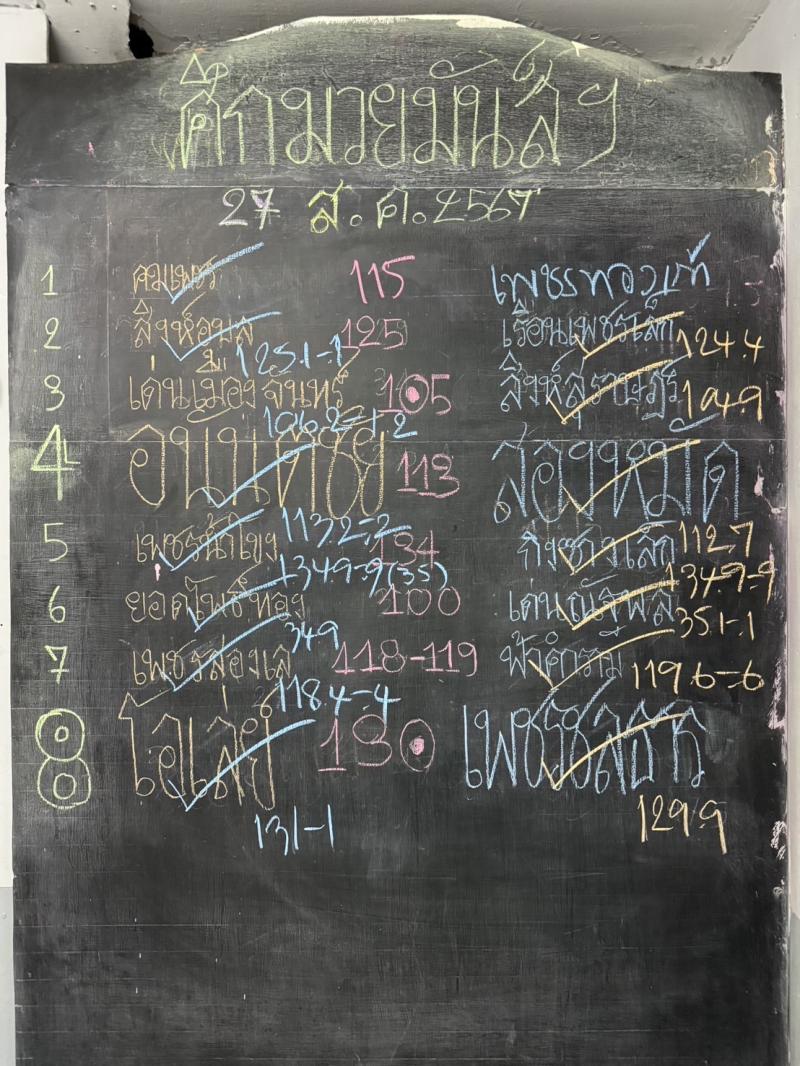 ศึกมวยมันส์ๆ
27 ส.ค.2567
1 คมเพชร 115 เพชรทองเก้
2 สิงห์อุบล 125 เรือนเพชรเล็ก 124.4
125.1-.1
3 เด่นเมืองจันทร์ 105 สิงห์สุราษฎร์ 104.9
106.2-1.2
4 อนันต์ชัย 113 สองหมัด
113.2-.2
5 เพชรน้ำโขง 134 กิ่งซางเล็ก 112.7
134.9-.9(35) 134.9-.9
6 ยอดโพธิ์ทอง 100 เด่นณัฐพล
349 35.1-.1
7 เพชรสองแล 118-119 ฟ้าคำราม 119.6-.6
118.4-.4
8 ไอ้เล่ย์ 130 เพชรชูสาร
131-1 129.9